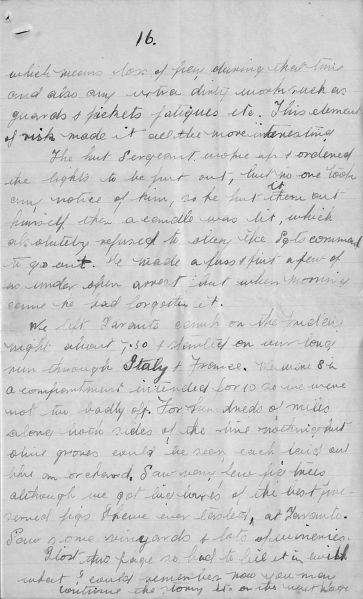 16.
which means loss of pay during that time
and also any extra dirty work such as
guards & pickets fatigues etc. This element
of risk made it all the more interesting
The hut Sergeant woke up & ordered
the lights to be put out, but no one took
any notice of him, so he put them out
himself then a candle was lit, which
absolutely refused to obey the Sgts command
to go out. He made a fuss & put a few of
us under open arrest but when morning
came he had forgotten it.
We left Taranto camp on the Friday
night about 7.30 & started on our long
run through Italy & France. We were 8 in
a compartment intended for 10 so we were
not too badly off. For hundreds of miles
along both sides of the line nothing but
olive groves could be seen each laid out
like an orchard. Saw very few fig trees
although we got two of the best pre-
served figs I have ever tasted, at Taranto.
Saw some vineyards & lots of
I lost this page so had to fill it in with
what I could remember now you may
continue the story it on the next page